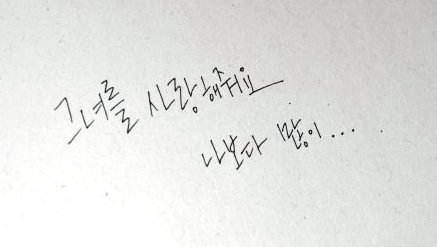 그녀를 사랑해줘요
나보다 많이...